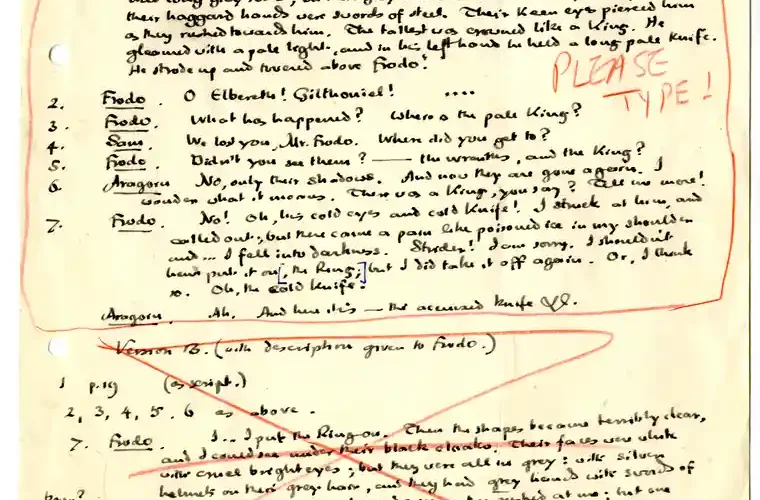 their haggard hands were swords of steel. Their keen eyes pierced him
as they rushed towards him. The tallest was crowned like a King. He
gleamed with a pale light, and in his left hand he held a long pale knife.
He strode up and towered above Frodo.
PLEASE
TYPE!
2. Frodo. O Elbereth! Gilthoniel! ....
3. Frodo. What has happened? Where is the pale King?
4. Sam. We lost you, Mr. Frodo. Where did you get to?
5. Frodo. Didn't you see them? — the wraiths, and the King?
6. Aragorn No, only their shadows. And now they are gone again. I
wonder what it means. There was a King, you say? Tell me more!
7. Frodo. No! Oh, his cold eyes and cold knife! I struck at him, and
called out; but there came a pain like poisoned ice in my shoulder
and... I fell into darkness. Strider! I am sorry. I shouldn't
have put it on [, the Ring;] but I did take it off again. Or, I think
so. Oh, the cold knife!
Aragorn. Ah. And here it is — the accursed knife
Version B. (with description given to Frodo.)
1 p.19 (as script.)
2, 3, 4, 5. 6 as above.
7. Frodo. I... I put the Ring on. Then the shapes became terribly clear,
and I could see under their black cloaks. Their faces were white
with cruel bright eyes; but they were all in grey: with silver
helmets on their grey hair, and they had grey hands with swords of
rushed at me; but one